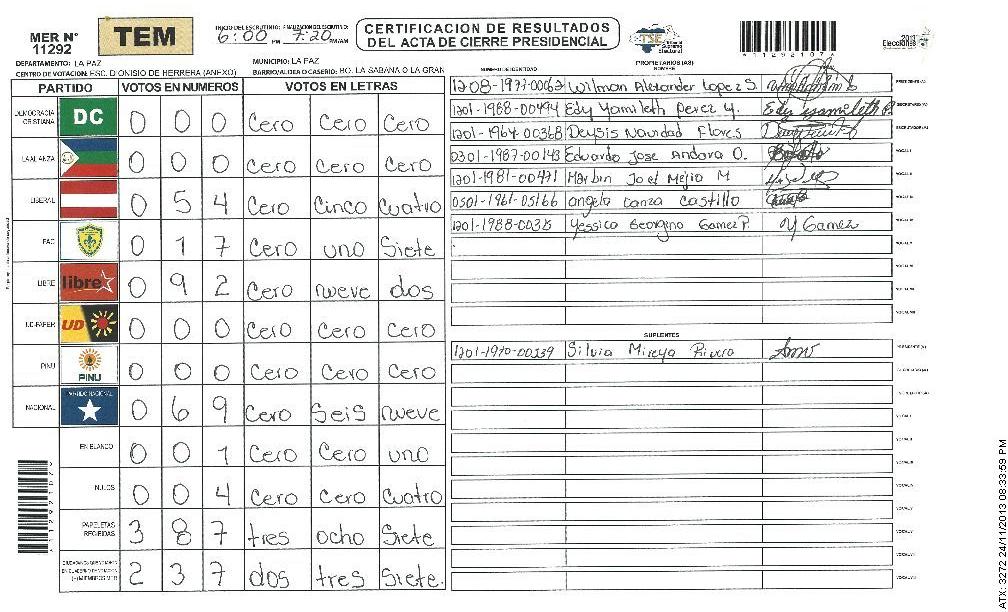 MER N° 11292
TEM
INICIO DEL ESCRUTINIO: FINALIZACION DEL ESCRUTINIO:
6:00 PM 7:20 PM/AM
CERTIFICACION DE RESULTADOS
DEL ACTA DE CIERRE PRESIDENCIAL
TSE Tribunal Supremo Electoral
A11292107A
2013
Elecciones
DEPARTAMENTO: LA PAZ
MUNICIPIO: LA PAZ
CENTRO DE VOTACION: ESC. DIONISIO DE HERRERA (ANEXO)
BARRIO/ALDEA O CASERIO: BO. LA SABANA O LA GRAN
PARTIDO VOTOS EN NUMEROS VOTOS EN LETRAS
DEMOCRACIA CRISTIANA DC 0 0 0 Cero Cero Cero
LA ALIANZA 0 0 0 Cero Cero Cero
LIBERAL 0 5 4 Cero Cinco Cuatro
PAC 0 1 7 Cero uno Siete
LIBRE libre 0 9 2 Cero nueve dos
UD-FAPER UD 0 0 0 Cero Cero Cero
PINU PINU 0 0 0 Cero Cero Cero
NACIONAL PARTIDO NACIONAL 0 6 9 Cero Seis nueve
EN BLANCO 0 0 1 Cero Cero uno
NULOS 0 0 4 Cero Cero Cuatro
PAPELETAS RECIBIDAS 3 8 7 tres ocho Siete
2 3 7 dos tres Siete.
PROPIETARIOS (AS)
NUMERO DE IDENTIDAD NOMBRE FIRMA
1208-1977-00062 Wilman Alexander Lopez S. PRESIDENTE(A)
1201-1988-00494 Edy Yamileth Perez Y. Edy yamileth P. SECRETARIO(A)
1201-1964-00368 Deysis Navidad Flores ESCRUTADOR(A)
0301-1987-00143 Eduardo Jose Andara O. VOCAL I
1201-1981-00471 Marbin Joel Mejia M VOCAL II
0501-1961-05166 angela Danza Castillo VOCAL III
1201-1988-00325 Yessica Georgina Gamez P. Y Gamez VOCAL IV
SUPLENTES
1201-1970-00339 Silvia Mireya Rivera PRESIDENTE(A)
A11292107A
ATX-3272 24/11/2013 08:33:59 PM